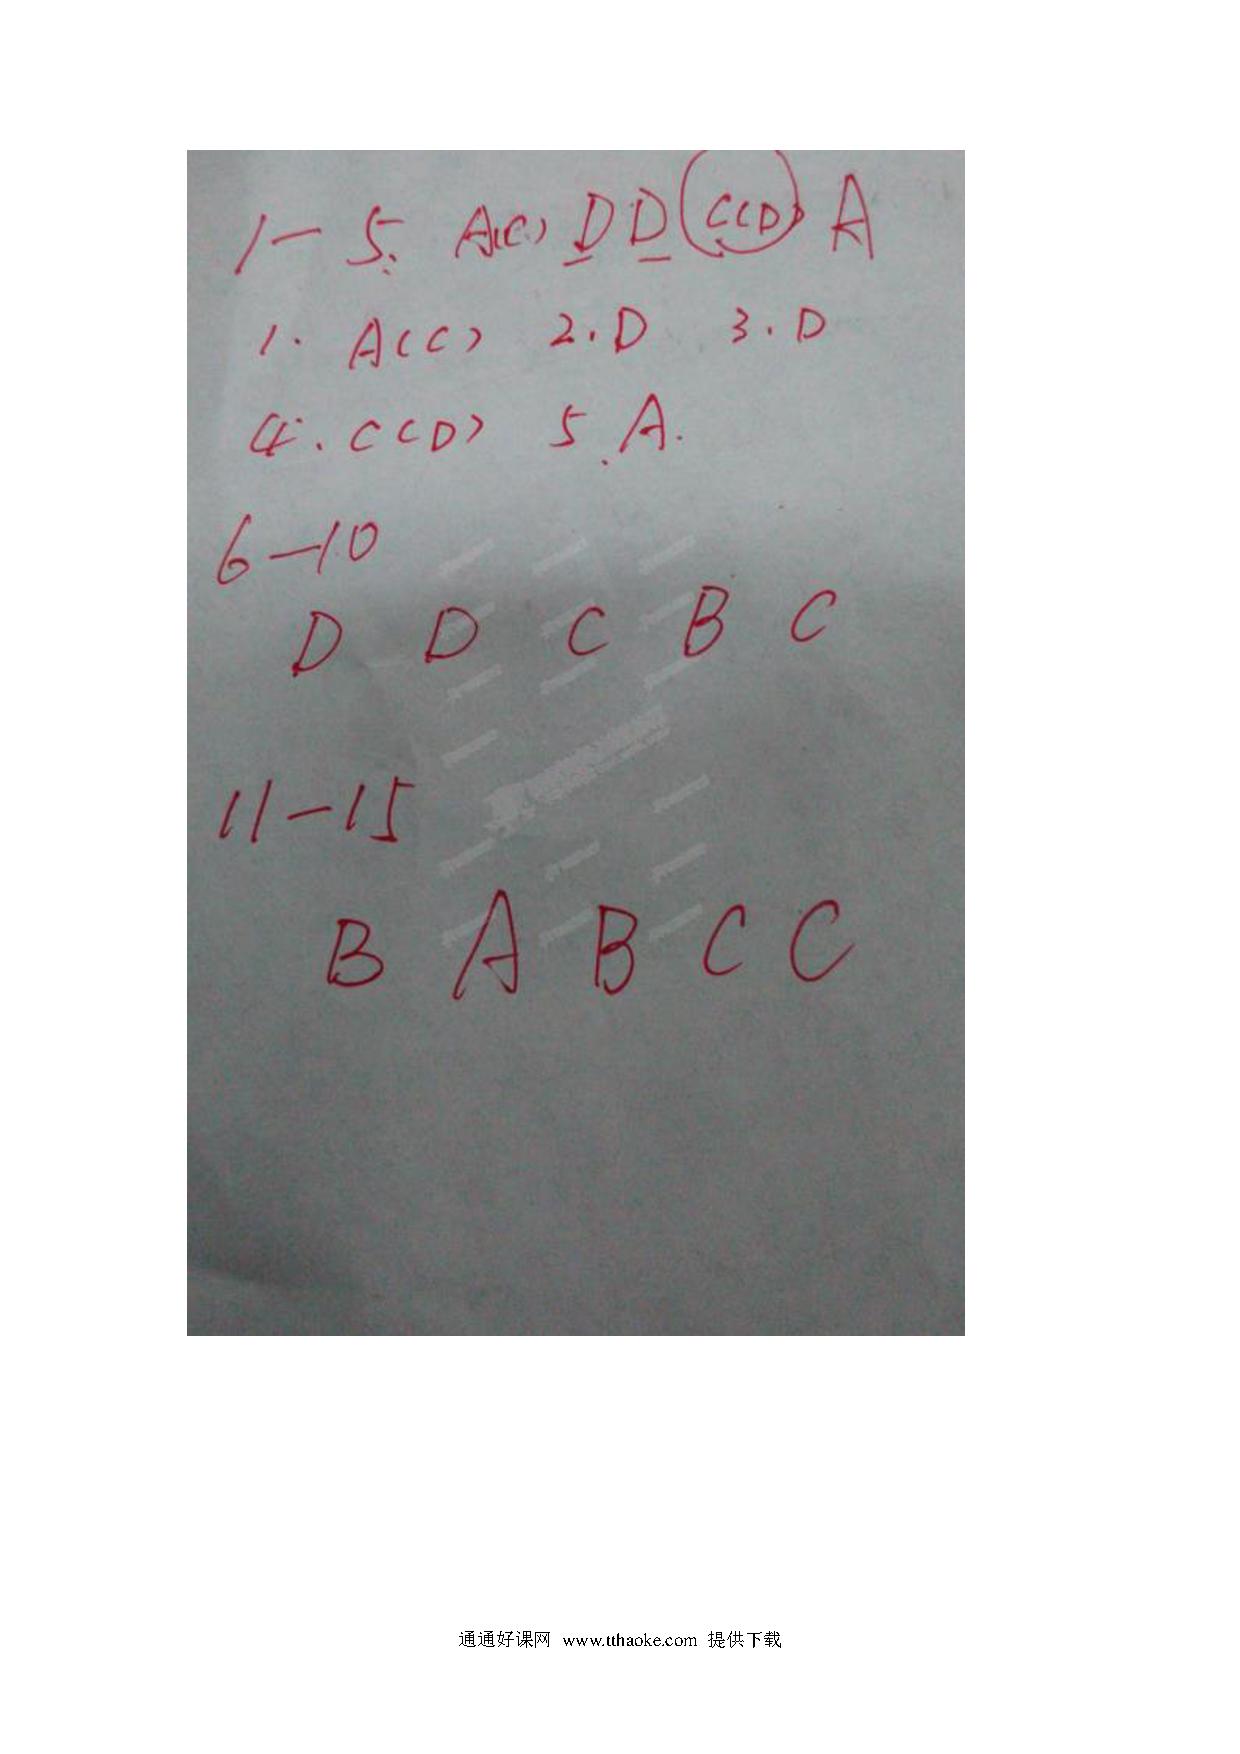 1-5. A(C) D D C(D) A
1. A(C) 2. D 3. D
4. C(D) 5. A.
6-10
D D C B C
11-15
B A B C C
通通好课网 www.tthaoke.com 提供下载